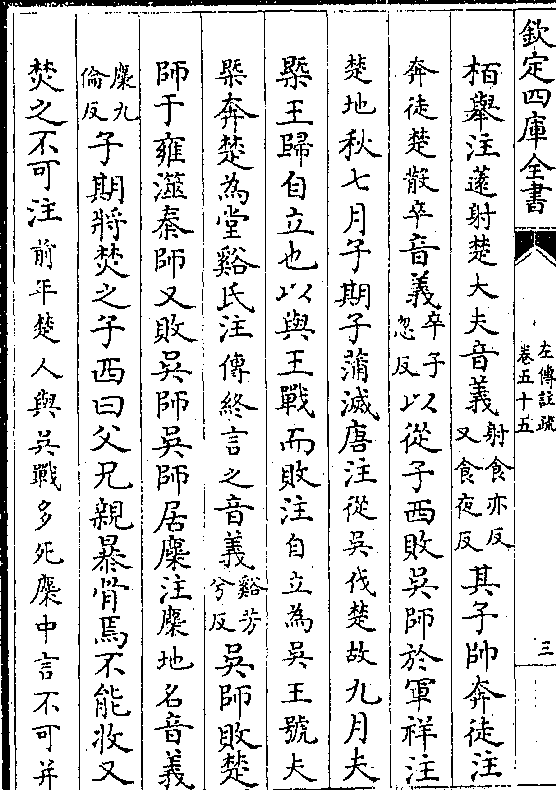 欽定四庫全書
左傳註疏
卷五十五
三
栢舉注薳射楚大夫音義射食亦反又食夜反其子帥奔徒注
奔徒楚散卒音義卒子忽反以從子西敗吳師於軍祥注
楚地秋七月子期子蒲滅唐注從吳伐楚故九月夫
槩王歸自立也以與王戰而敗注自立為吳王號夫
槩奔楚為堂谿氏注傳終言之音義谿芳兮反吳師敗楚
師于雍澨秦師又敗吳師吳師居麇注麇地名音義
麇九倫反子期將焚之子西曰父兄親暴骨焉不能收又
焚之不可注前年楚人與吳戰多死麇中言不可并